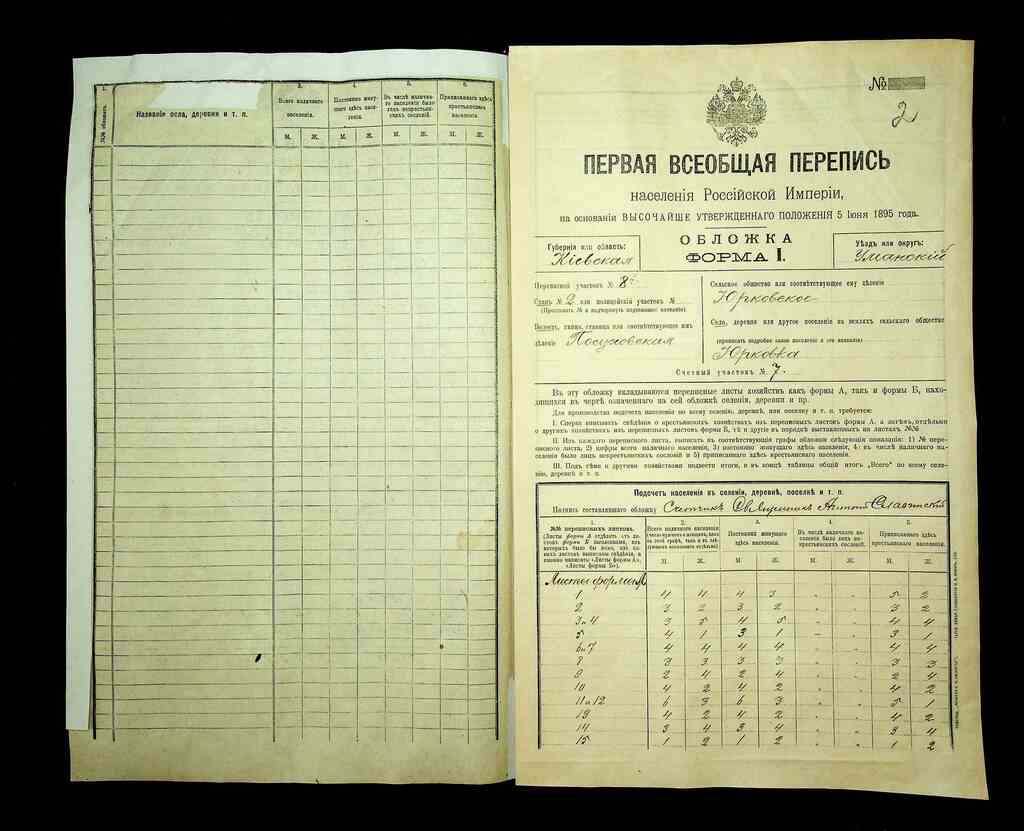 №№ обложекъ.
Названія села, деревни и т. п.
3.
Всего наличнаго
населенія.
4.
Постоянно живу-
щаго здѣсь насе-
ленія.
5.
Въ числѣ налично-
го населенія было
лицъ некрестьян-
скихъ сословій.
6.
Приписаннаго здѣсь
крестьянскаго
населенія.
М. Ж. М. Ж. М. Ж. М. Ж.
№
2
ПЕРВАЯ ВСЕОБЩАЯ ПЕРЕПИСЬ
населенія Россійской Имперіи,
на основаніи ВЫСОЧАЙШЕ УТВЕРЖДЕННАГО ПОЛОЖЕНІЯ 5 Іюня 1895 года.
ОБЛОЖКА
ФОРМА I.
Губернія или область:
Кіевская
Уѣздъ или округъ:
Уманскій
Переписной участокъ № 8
Станъ № 2 или полицейскій участокъ №
(Проставить № и подчеркнуть подлежащее названіе)
Волость, гмина, станица или соотвѣтствующее имъ
дѣленіе Посуховская
Сельское общество или соотвѣтствующее ему дѣленіе
Юрковское
Село, деревня или другое поселеніе на земляхъ сельскаго общества:
Юрковка
Счетный участокъ № 7.
Въ эту обложку вкладываются переписные листы хозяйствъ какъ формы А, такъ и формы Б, нахо-
дящихся въ чертѣ означеннаго на сей обложкѣ селенія, деревни и пр.
Для производства подсчета населенія по всему селенію, деревнѣ, или поселку и т. п. требуется:
I. Сперва вписывать свѣдѣнія о крестьянскихъ хозяйствахъ изъ переписныхъ листовъ формы А, а затѣмъ, отдѣльно
о другихъ хозяйствахъ изъ переписныхъ листовъ формы Б, тѣ и другіе въ порядкѣ выставленныхъ на листахъ №№
II. Изъ каждаго переписнаго листа, выписать въ соотвѣтствующія графы обложки слѣдующія показанія: 1) № пере-
писного листа, 2) цифры всего наличнаго населенія, 3) постоянно живущаго здѣсь населенія, 4) въ числѣ наличнаго на-
селенія было лицъ некрестьянскихъ сословій и 5) приписаннаго здѣсь крестьянскаго населенія.
III. Подъ сѣми и другими хозяйствами подвести итоги, и въ концѣ таблицы общій итогъ „Всего“ по всему селе-
нію, деревнѣ и т. п.
Подсчетъ населенія въ селеніи, деревнѣ, поселкѣ и т. п.
Подпись составлявшаго обложку Счетчикъ Священникъ Антоній
1.
№№ переписныхъ листовъ.
(Листы формы А отдѣлить отъ ли-
стовъ формы Б заглавіями, изъ
2.
Всего наличнаго населенія
3.
Постоянно живущаго
здѣсь населенія.
4.
Въ числѣ наличнаго на-
селенія было лицъ не-
крестьянскихъ сословій.
5.
Приписаннаго здѣсь
крестьянскаго населенія.
М. Ж. М. Ж. М. Ж. М. Ж.
Листы формы А
1 4 4 4 3 . . 5 2
2 3 2 3 2 . . 3 2
3 и 4 3 5 4 5 . . 4 4
5 4 1 3 1 – . 3 1
6 и 7 4 4 4 4 . . 4 4
8 3 3 3 3 . . 3 3
9 2 4 2 4 . . 2 4
10 4 2 4 2 . . 4 2
11 и 12 6 3 6 3 . . 5 1
13 4 2 4 2 . . 4 2
14 3 4 3 4 . . 3 4
15 1 2 1 2 . . 1 2